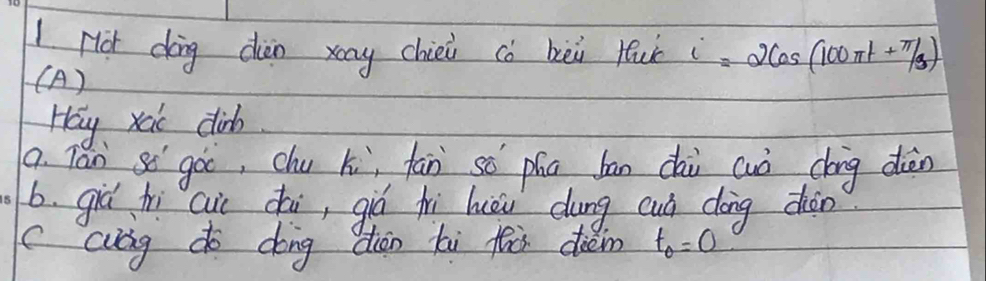 1. Một dòng điện xoay chiều có biểu thức i = 2Cos(100πt + π/3)
(A)
Hãy xác định.
a. Tần số góc, chu kì, tần số pha ban đầu cuả dòng điện
b. giá trị cực đại, giá trị hiệu dụng cuả dòng điện.
C cường độ dòng điện tại thời điểm t₀=0.